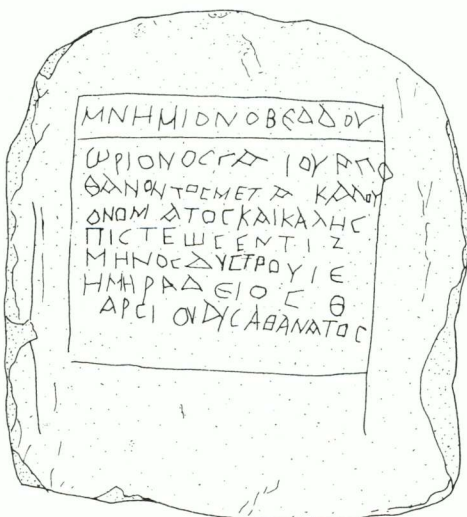 ΜΝΗΜΙΟΝΟΒΕΔΔΟΥ
ωΡΙΟΝΟCΓΑΙΟΥΑΠΟ
ΘΑΝΟΝΤΟCΜΕΤΑ ΚΑΛΟΥ
ΟΝΟΜΑΤΟCΚΑΙΚΑΛΗC
ΠΙCΤΕωCΕΝΤΙΖ
ΜΗΝΟCΔΥCΤΡΟΥΙΕ
ΗΜΗΡΑΔΕΙΟCΘ
ΑΡCΙΟΥΔΥCΑΘΑΝΑΤΟC